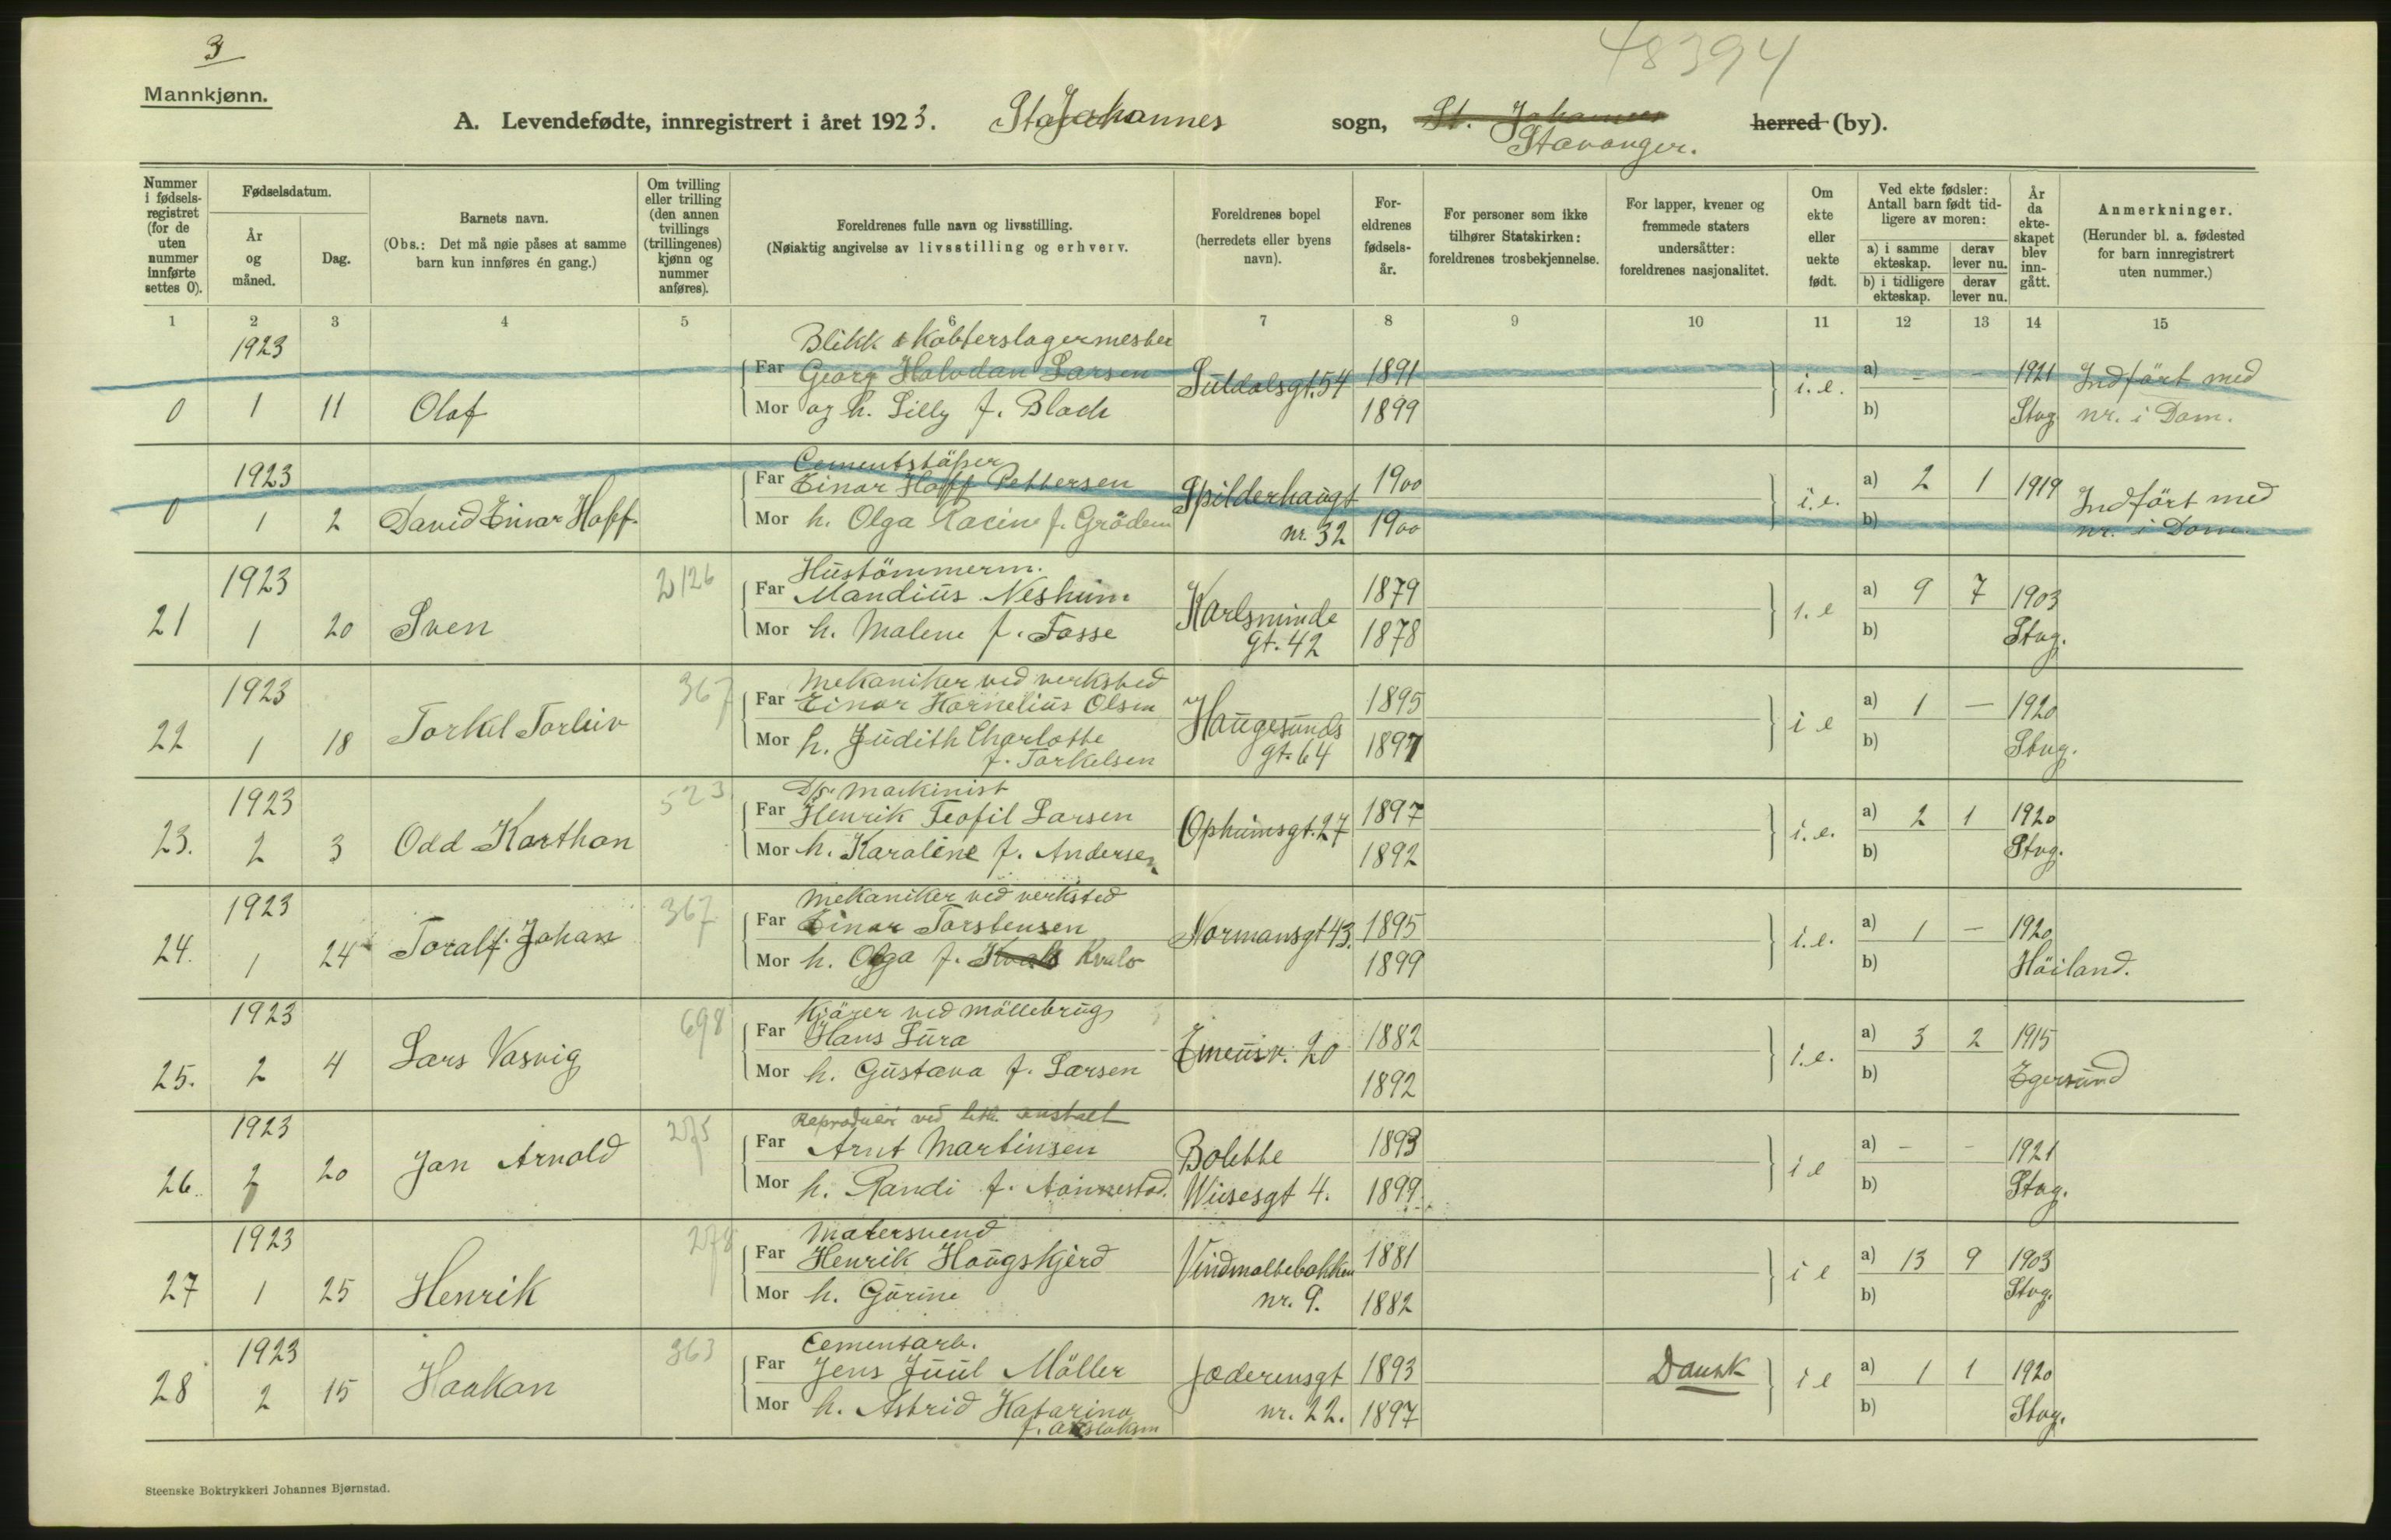 3
48394
Mannkjønn.
A. Levendefødte, innregistrert i året 1923. St. Johannes sogn, St. Johannes herred (by).
Stavanger.
Nummer i fødsels-registret (for de uten nummer innførte settes 0).
Fødselsdatum.
År og måned.
Dag.
Barnets navn.
(Obs.: Det må nøie påses at samme barn kun innføres én gang.)
Om tvilling eller trilling (den annen tvillings (trillingenes) kjønn og nummer anføres).
Foreldrenes fulle navn og livsstilling.
(Nøiaktig angivelse av livsstilling og erhverv.
Foreldrenes bopel (herredets eller byens navn).
For-eldrenes fødsels-år.
For personer som ikke tilhører Statskirken: foreldrenes trosbekjennelse.
For lapper, kvener og fremmede staters undersåtter: foreldrenes nasjonalitet.
Om ekte eller uekte født.
Ved ekte fødsler: Antall barn født tid-ligere av moren:
a) i samme ekteskap. derav lever nu.
b) i tidligere ekteskap. derav lever nu.
År da ekte-skapet blev inn-gått.
Anmerkninger.
(Herunder bl. a. fødested for barn innregistrert uten nummer.)
1 2 3 4 5 6 7 8 9 10 11 12 13 14 15
1923 Blikk & Kobberslagermester
Far Georg Halvdan Larsen Suldalsgt. 54 1891 i. e. a) - - 1921 Indført med
0 1 11 Olaf Mor og h. Lilly f. Block 1899 b) Stvg. nr. i Dom.
1923 Cementstøper
Far Einar Hoff Pettersen Spilderhaugt 1900 i.e. a) 2 1 1919 Indført med
0 1 2 David Einar Hoff. Mor h. Olga Racine f. Grödem nr. 32 1900 b) nr. i Dom.
1923 2126 Hustömmerm.
Far Mandius Neshium Karlsminde 1879 i. e a) 9 7 1903
21 1 20 Sven Mor h. Malene f. Fosse gt. 42 1878 b) Stvg.
1923 367 Mekaniker ved verksted
Far Einar Kornelius Olsen Haugesunds 1895 i e a) 1 — 1920
22 1 18 Torkel Torleiv Mor h. Judith Charlotte gt. 64 1897 b) Stvg.
f. Torkelsen
1923 523 D/s. maskinist
Far Henrik Teofil Larsen Ophiimsgt. 27 1897 i. e. a) 2 1 1920
23. 2 3 Odd Karthon Mor h. Karoline f. Andersen 1892 b) Stvg.
1923 367 Mekaniker ved verksted
Far Einar Torstensen Normansgt 43. 1895 i. e. a) 1 — 1920
24. 1 24 Toralf Johan Mor h. Olga f. Kvalv 1899 b) Höiland.
1923 698 Kjörer ved möllebrug
Far Hans Lura Emeusv. 20 1882 i. e. a) 3 2 1915
25. 2 4 Lars Vasvig Mor h. Gustava f. Larsen 1892 b) Egersund
1923 275 Reproduktör ved lith. anstalt
Far Arnt Martinsen Bolette 1893 i e a) - - 1921
26. 2 20 Jan Arnold Mor h. Randi f. Wiisesgt 4. 1899 b) Stvg.
1923 278 Malersvend
Far Henrik Haugskjerd Vindmøllebakken 1881 i e a) 13 9 1903
27 1 25 Henrik Mor h. Gurine nr. 9. 1882 b) Stvg.
1923 363 Cementarb.
Far Jens Juul Möller Jæderensgt 1893 Dansk i e a) 1 1 1920
28 2 15 Haakon Mor h. Astrid Katarina nr. 22. 1897 b) Stvg.
f. Aslaksen
Steenske Boktrykkeri Johannes Bjørnstad.